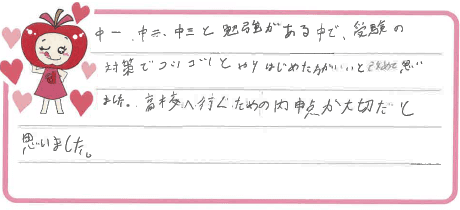 中一、中二、中三と勉強がある中で、受験の
対策でコツコツとやりはじめた方がいいと改めて思い
ました。高校へ行くための内申点が大切だと
思いました。